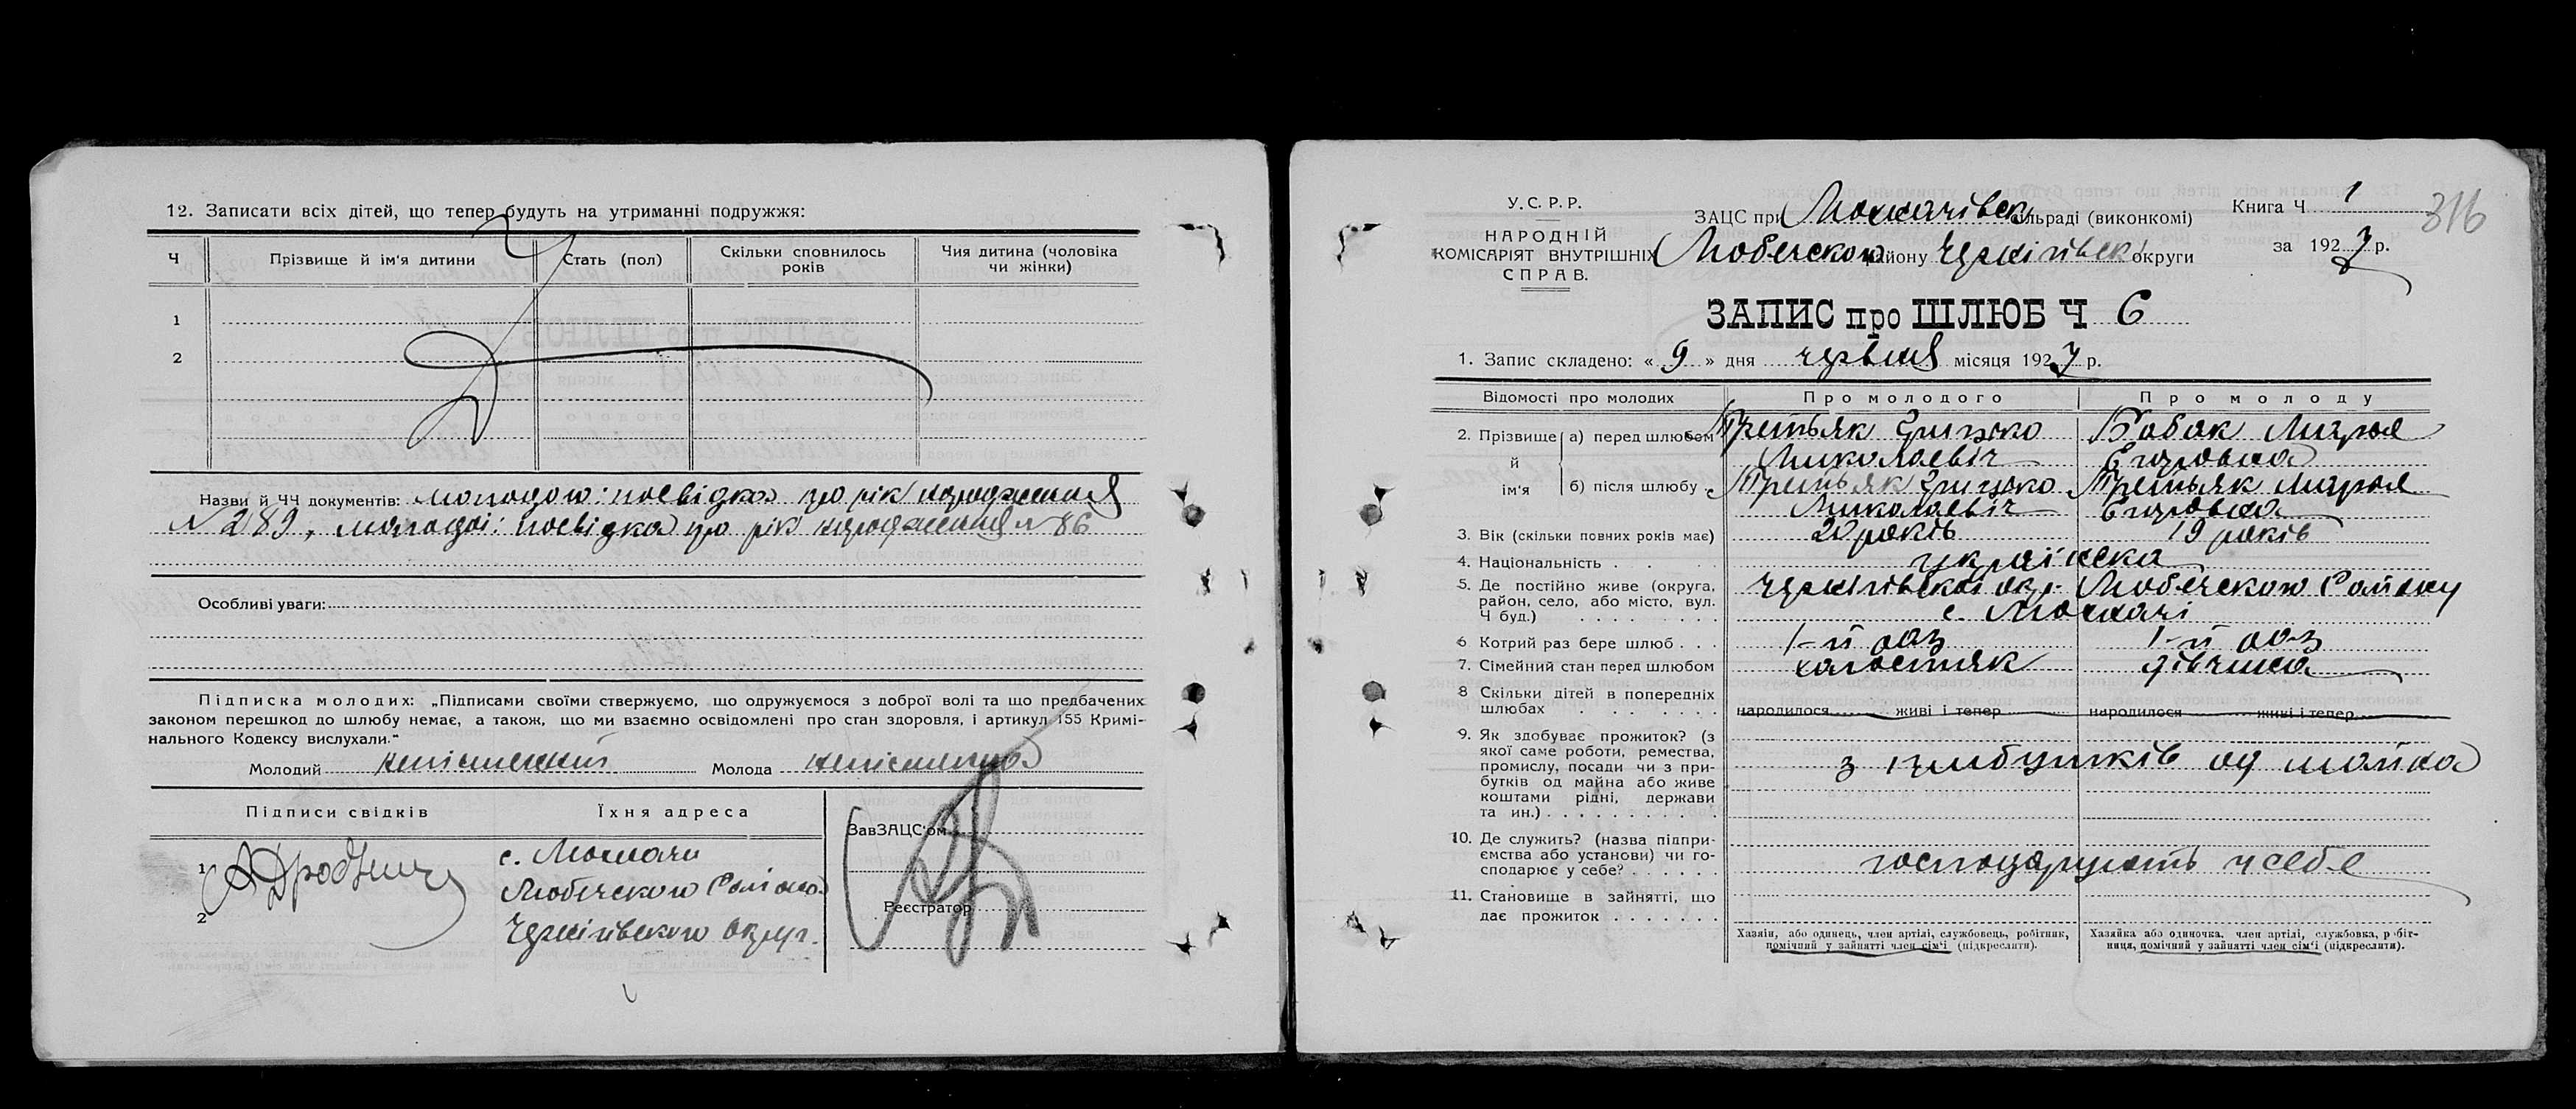 12. Записати всіх дітей, що тепер будуть на утриманні подружжя:
Ч Прізвище й ім'я дитини Стать (пол) Скільки сповнилось років Чия дитина (чоловіка чи жінки)
1
2
Назви й ЧЧ документів: молодого: посвідка про рік народження
N 289, молодої: посвідка про рік народження N 86
Особливі уваги:
Підписка молодих: „Підписами своїми стверджуємо, що одружуємося з доброї волі та що предбачених
законом перешкод до шлюбу немає, а також, що ми взаємно освідомлені про стан здоровля, і артикул 155 Кримі-
нального Кодексу вислухали."
Молодий неписменний Молода неписменна
Підписи свідків Їхня адреса
ЗавЗАЦС'ом
1 с. Мохначи
Любечского Району
2 Реєстратор
Чернігівского округ.
У.С.Р.Р.
НАРОДНІЙ
КОМІСАРІЯТ ВНУТРІШНІХ
СПРАВ.
ЗАЦС при Мохначівск сільраді (виконкомі) Книга Ч 1
316
Любечского району Чернігівськ округи за 1927 р.
ЗАПИС про ШЛЮБ Ч 6
1. Запис складено: « 9 » дня червня місяця 1927 р.
Відомості про молодих Про молодого Про молоду
2. Прізвище й ім'я а) перед шлюбом Третьяк Грицько Миколаевіч Бабак Марья Егоровна
б) після шлюбу Третьяк Грицько Миколаевіч Третьяк Марья Егоровна
3. Вік (скільки повних років має) 20 років 19 років
4. Національність українска
5. Де постійно живе (округа, Чернігівскої окр. Любечского Району
район, село, або місто, вул. с. Мохначі
Ч буд.)
6 Котрий раз бере шлюб 1-й раз 1-й раз
7. Сімейний стан перед шлюбом халостяк дівчина
8 Скільки дітей в попередніх
шлюбах народилося живі і тепер народилося живі і тепер
9. Як здобуває прожиток? (з
якої саме роботи, ремества,
промислу, посади чи з при- з прибутків од майна
бутків од майна або живе
коштами рідні, держави
та ин.)
10. Де служить? (назва підпри-
ємства або установи) чи го- господарують у себе
сподарює у себе?
11. Становище в зайнятті, що
дає прожиток
Хазяїн, або одинець, член артілі, службовець, робітник,
помічний у зайнятті член сім'ї (підкреслити).
Хазяйка або одиночка, член артілі, службовка, робіт-
ниця, помічний у зайнятті член сім'ї (підкреслити).